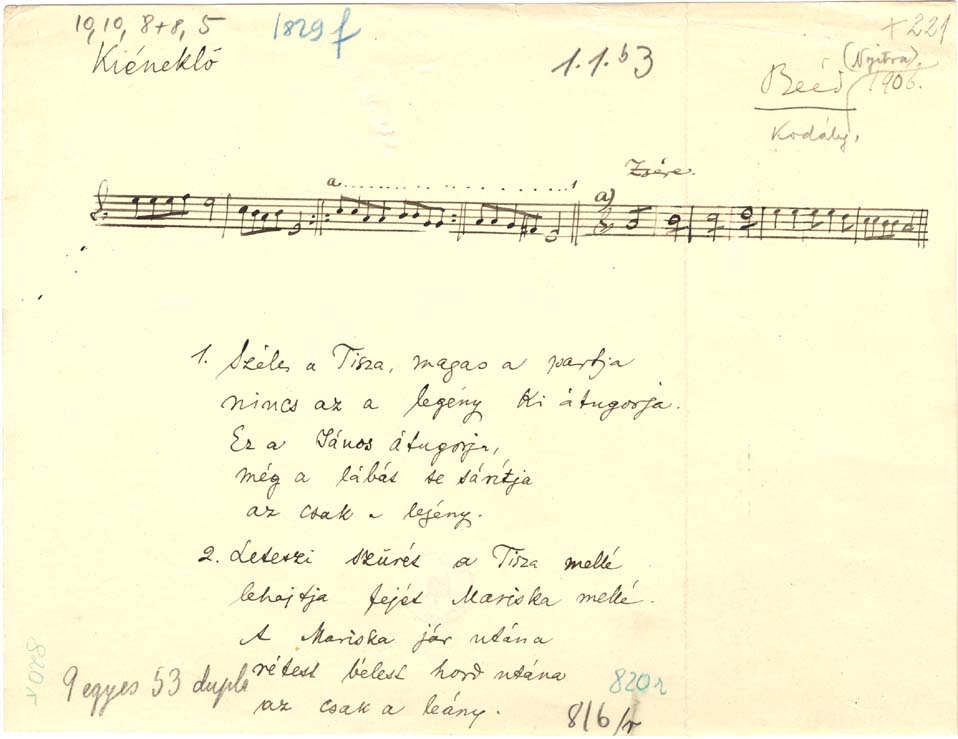 10, 10, 8+8, 5
1829 f
+221
Kiéneklő
1.1.b3
(Nyitra)
Beéd 1906.
Kodály,
Zsére.
a
a)
1. Széles a Tisza, magas a partja
nincs az a legény ki átugorja.
Ez a János átugorja,
még a lábát se sárítja
az csak a legény.
2. Leteszi szűrét a Tisza mellé
lehajtja fejét Mariska mellé.
A Mariska jár utána
rétest bélest hord utána
az csak a leány.
9 egyes 53 dupla
820r
820r
8/6/r